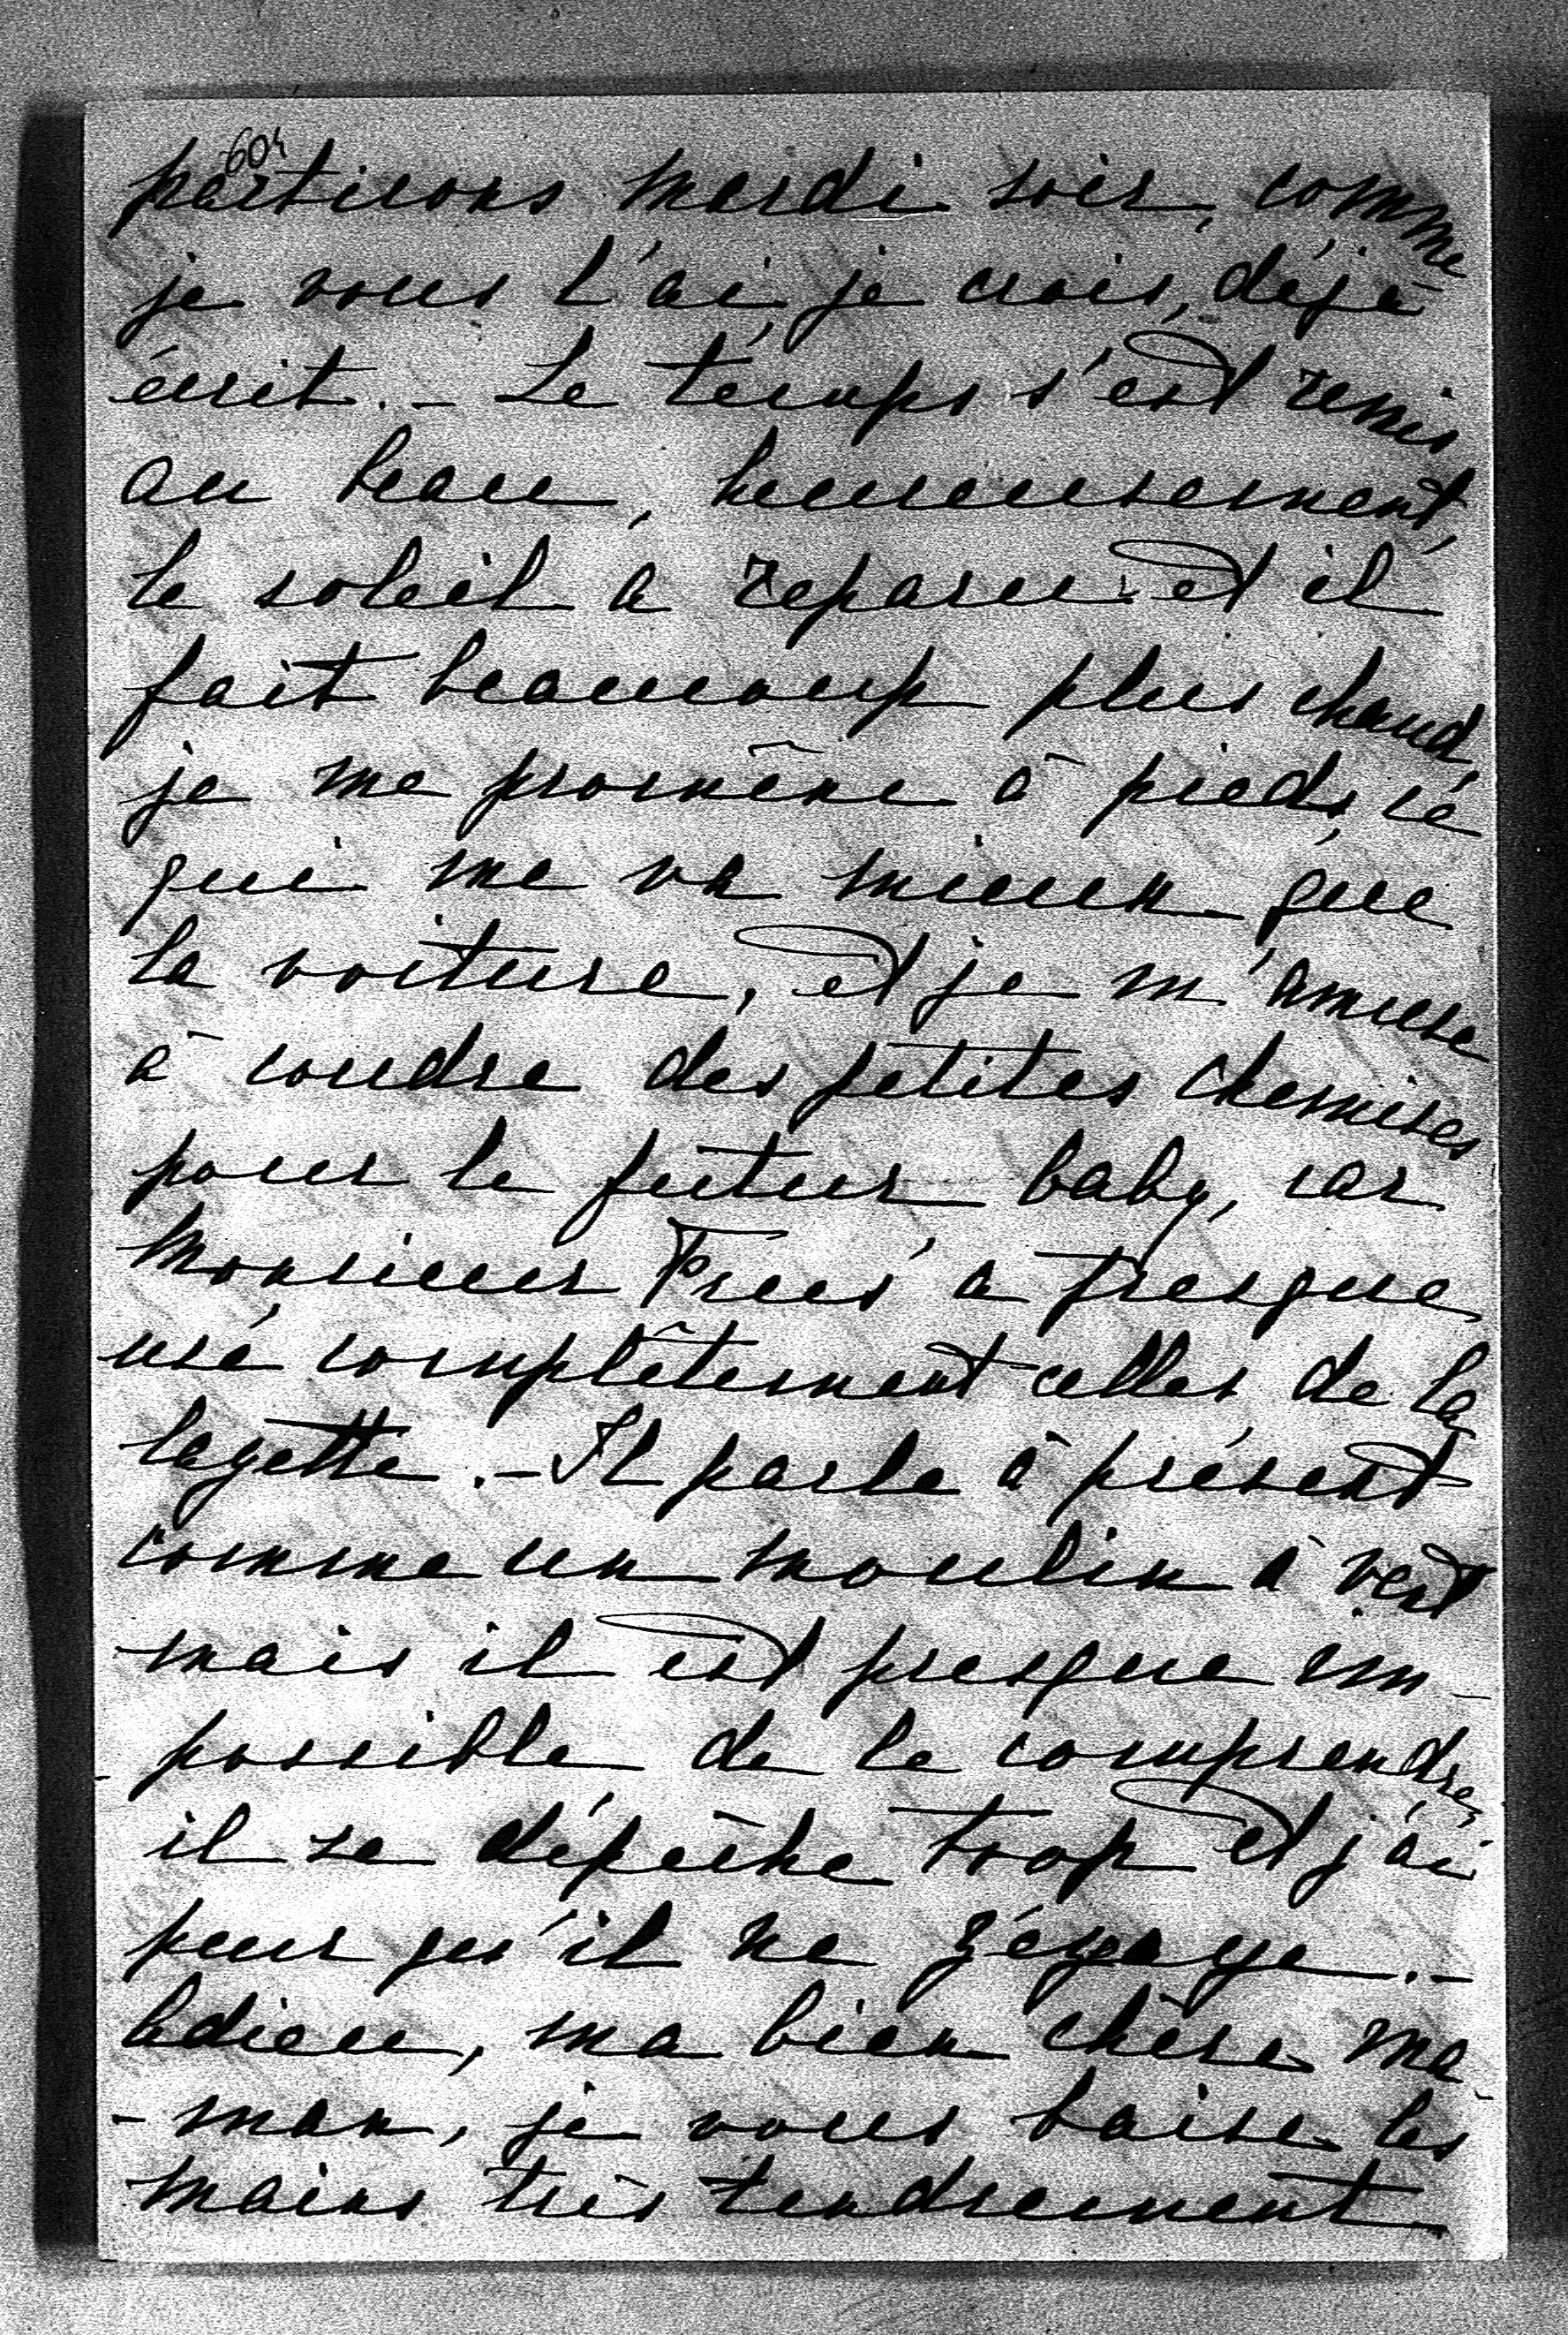 604
partirons mardi soir, comme
je vous l'ai, je crois, déjà
écrit. - Le temps s'est remis
au beau, heureusement,
le soleil a reparu et il
fait beaucoup plus chaud,
je me promène à pieds, ce
qui me va mieux que
la voiture, et je m'amuse
à coudre des petites chemises
pour le futur baby, car
Monsieur a presque
usé complètement celles de la
layette. - Il parle à présent
comme un moulin à vent
mais il est presque im-
-possible de le comprendre,
il se dépêche trop et j'ai
peur qu'il ne zégaye. -
Adieu, ma bien chère ma-
-man, je vous baise les
mains très tendrement